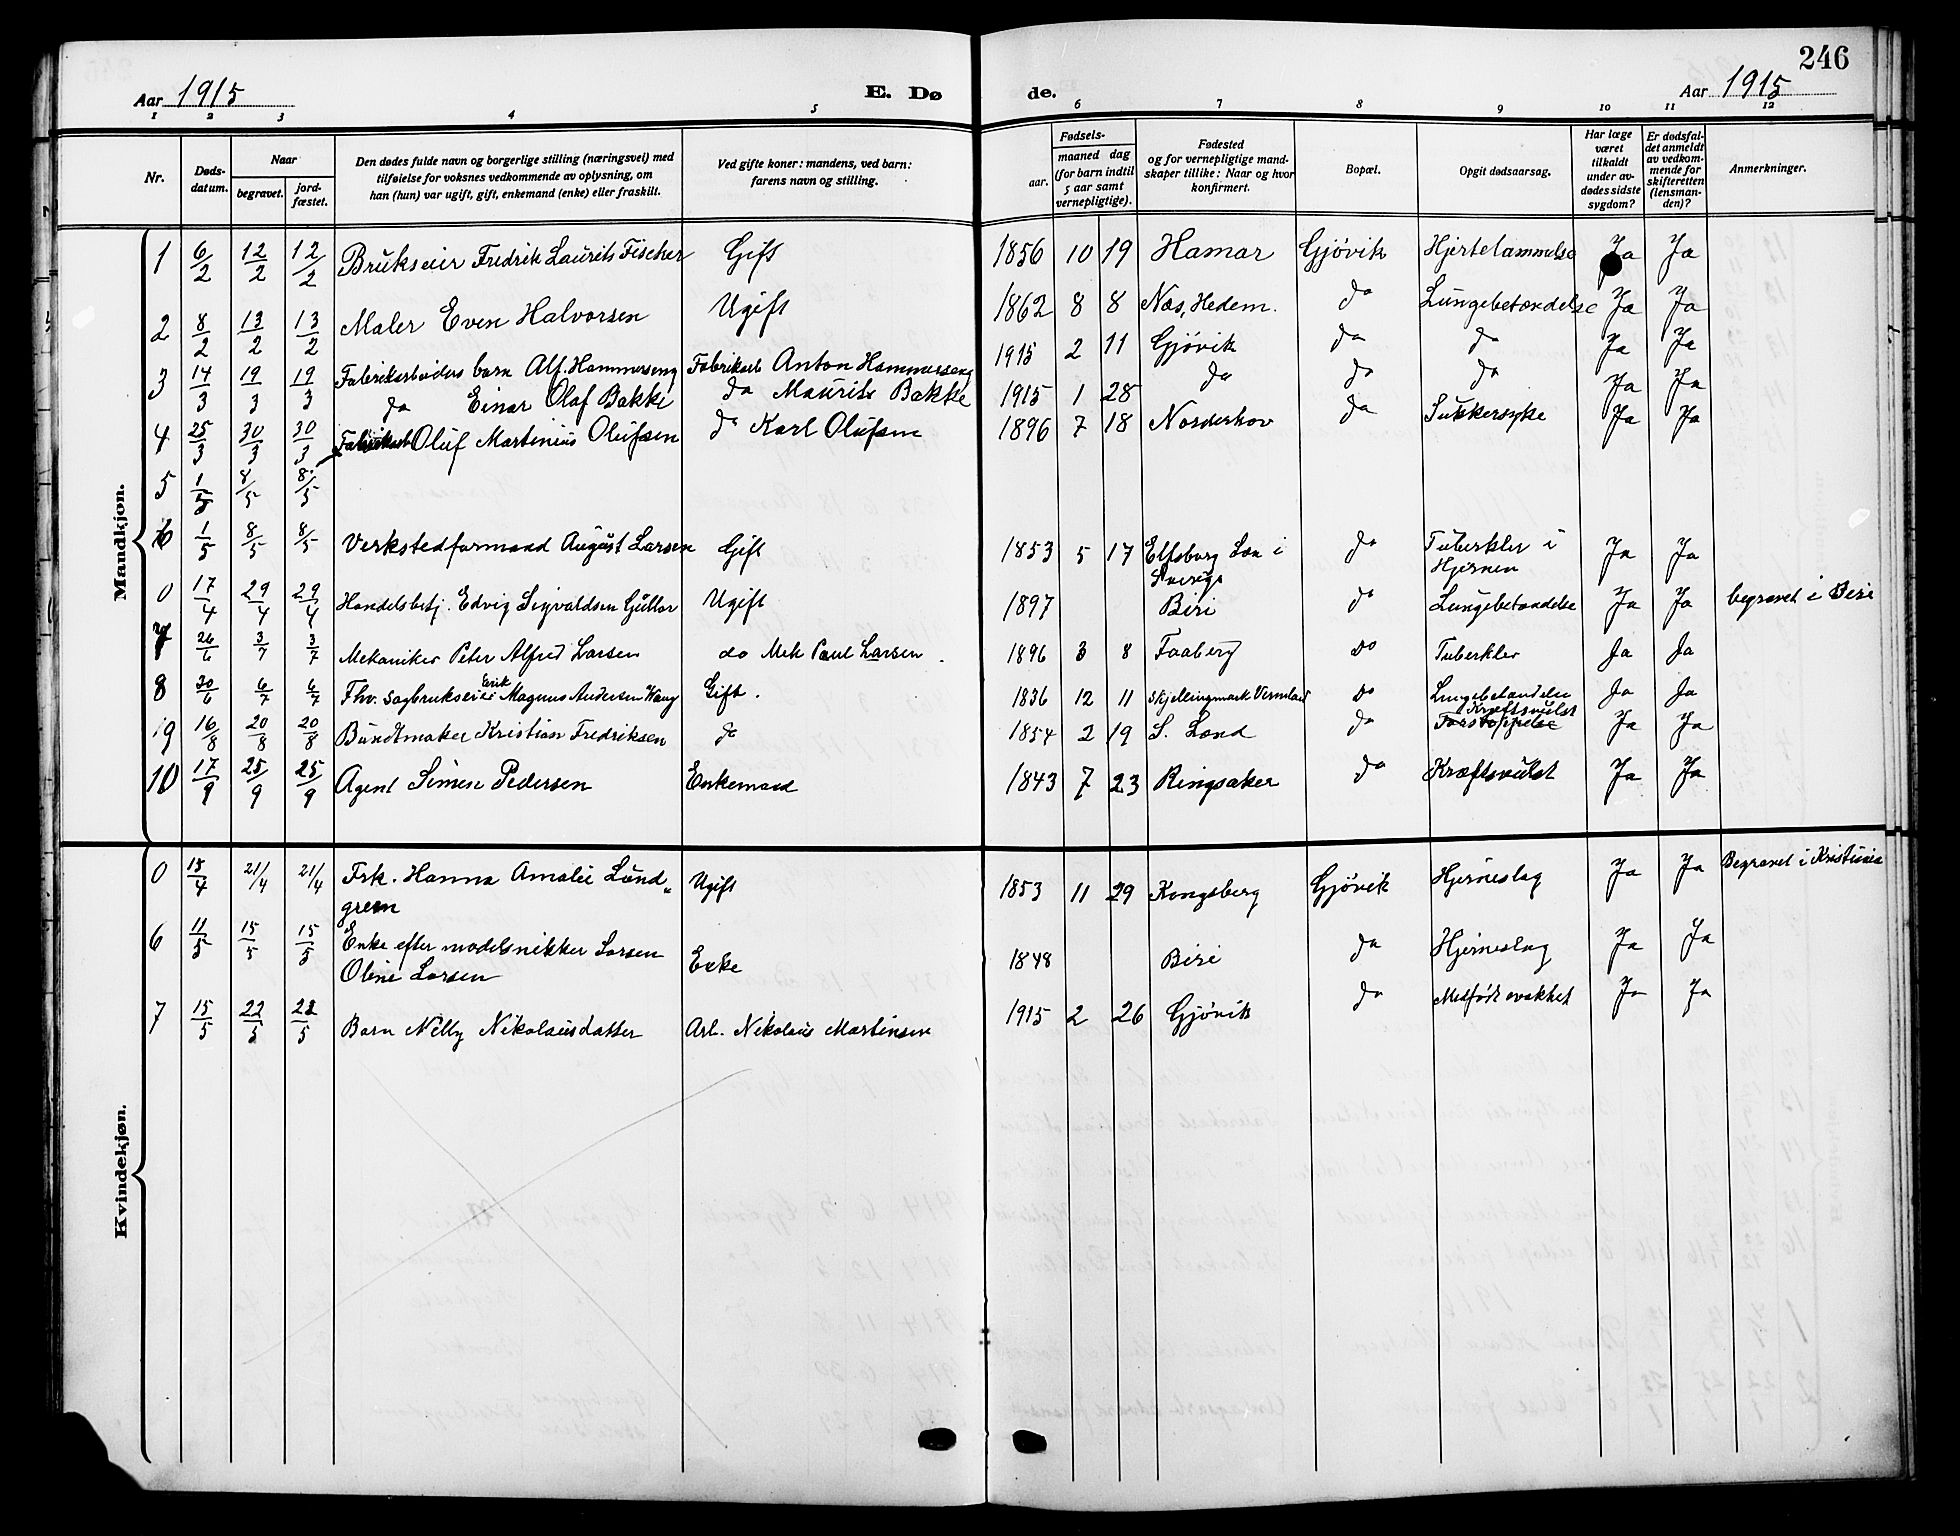 246
Aar 1915 E. Dø de. Aar 1915
1 2 3 4 5 6 7 8 9 10 11 12
Nr.
Døds-
datum.
Naar
begravet.
jord-
fæstet.
Den dødes fulde navn og borgerlige stilling (næringsvei) med
tilføielse for voksnes vedkommende av oplysning, om
han (hun) var ugift, gift, enkemand (enke) eller fraskilt.
Ved gifte koner: mandens, ved barn:
farens navn og stilling.
Fødsels-
aar.
maaned dag
(for barn indtil
5 aar samt
vernepligtige).
Fødested
og for vernepligtige mand-
skaper tillike: Naar og hvor
konfirmert.
Bopæl.
Opgit dødsaarsag.
Har læge
været
tilkaldt
under av-
dødes sidste
sygdom?
Er dødsfal-
det anmeldt
av vedkom-
mende for
skifteretten
(lensman-
den)?
Anmerkninger.
Mandkjøn.
1 6/2 12/2 12/2 Brukseier Fredrik Laurits Fischer Gift 1856 10 19 Hamar Gjövik Hjertelammelse Ja Ja
2 8/2 13/2 13/2 Maler Even Halvorsen Ugift 1862 8 8 Nas, Hedem. do Lungebetændelse Ja Ja
3 14/3 19/3 19/3 Fabrikarbeiders barn Alf. Hammerseng Fabrikarb Anton Hammerseng 1915 2 11 Gjövik do do Ja Ja
do Einar Olaf Bakke do Maurits Bakke 1915 1 28 do do do Ja Ja
4 25/3 30/3 30/3 Fabrikarb Oluf Martinius Olufsen do Karl Olufsen 1896 7 18 Norderhov do Sukkersyke Ja Ja
5 1/5 8/5 8/5
6 1/5 8/5 8/5 Verkstedformand August Larsen Gift 1853 5 17 Elfsborg Len i do Tuberkler i Ja Ja
Sverige Hjernen
0 17/4 29/4 29/4 Handelsbetj. Edvig Sigvaldsen Gullor Ugift 1897 Biri do Lungebetændelse Ja Ja begravet i Biri
7 26/6 3/7 3/7 Mekaniker Peter Alfred Larsen do Mek Paul Larsen. 1896 3 8 Faaberg do Tuberkler Ja Ja
8 30/6 6/7 6/7 Fhv. Sagbrukseier Erik Magnus Andersen Wang Gift. 1836 12 11 Skjellingmark Vermland do Lungebetændelse Ja Ja
9 16/8 20/8 20/8 Bundtmaker Kristian Fredriksen do 1854 2 19 S. Land do Kræftsvulst Forstoppelse Ja Ja
10 17/9 25/9 25/9 Agent Simen Pedersen Enkemand 1843 7 23 Ringsaker do Kræftsvulst Ja Ja
Kvindekjøn.
0 15/4 21/4 21/4 Frk. Hanna Amalie Lund- Ugift 1853 11 29 Kongsberg Gjövik Hjerneslag Ja Ja Begravet i Kristiania
green
6 11/5 15/5 15/5 Enke efter modelsnikker Larsen
Oline Larsen Enke 1848 Biri do Hjerneslag Ja Ja
7 15/5 22/5 22/5 Barn Nelly Nikolausdatter Arb. Nikolaus Martinsen 1915 2 26 Gjövik do Medfödt svakhet Ja Ja